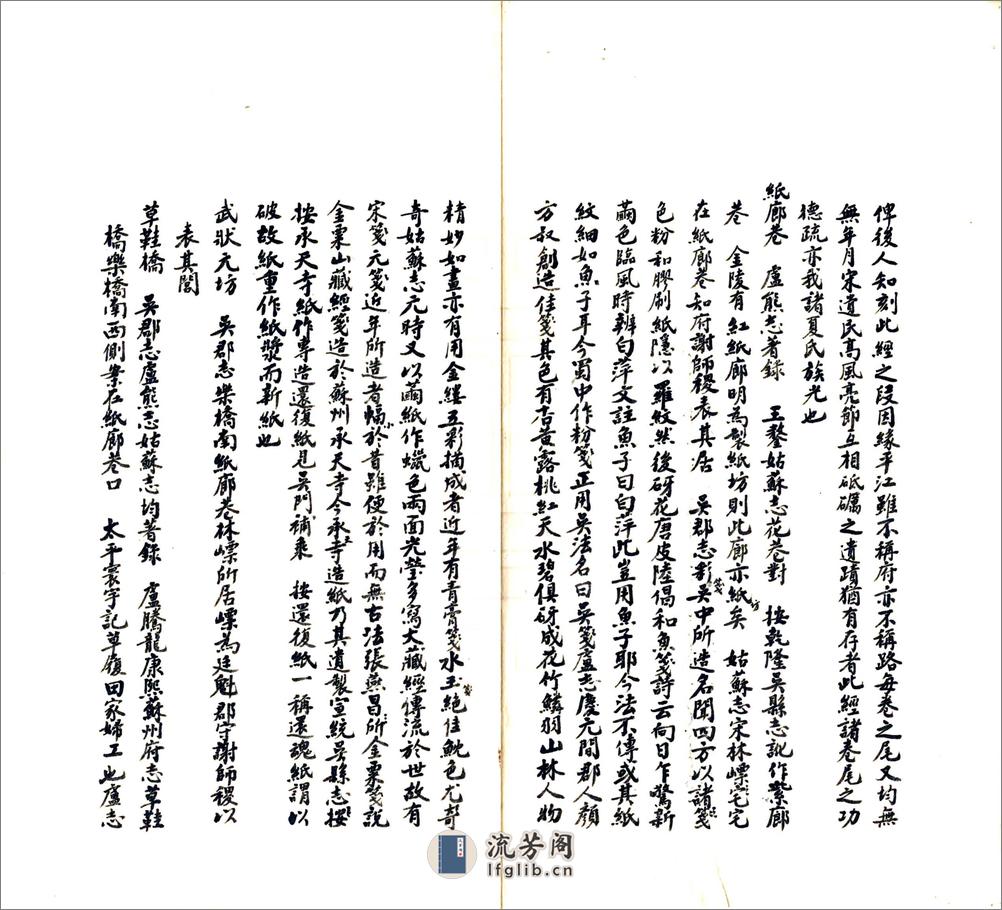 俾後人知刻此經之段因緣平江雖不稱府亦不稱路每卷之尾又均無
無年月宋遺民高風亮節互相砥礪之遺蹟猶有存者此經諸卷尾之功
德疏亦我諸夏氏族光也
紙廊巷　盧熊志著錄　王鏊姑蘇志花巷對　按乾隆吳縣志訛作紫廊
巷　金陵有紅紙廊明為製紙坊則此廊亦紙坊矣　姑蘇志宋林嘌宅宅
在紙廊巷知府謝師稷表其居　吳郡志彩箋吳中所造名聞四方以諸箋
色粉和膠刷紙隱以羅紋然後砑花唐皮陸倡和魚箋詩云向日乍驚新
繭色臨風時辨白萍文註魚子曰白萍此豈用魚子耶今法不傳或其紙
紋細如魚子耳今蜀中作粉箋正用吳法名曰吳箋盧志慶元間郡人顏
方叔創造佳箋其色有古黃露桃紅天水碧俱砑成花竹鱗羽山林人物
精妙如畫亦有用金縷五彩描成者近年有青膏箋水玉箋絕佳魷色尤奇
奇姑蘇志元時又以繭紙作蠟色兩面光瑩多寫大藏經傳流於世故有
宋箋元箋近年所造者幅於昔雖便於用而無古法張燕昌所金粟箋說
金粟山藏經箋造於蘇州承天寺今承天寺造紙乃其遺製宣統吳縣志按
按承天寺紙作專造還復紙見吳門補乘　按還復紙一稱還魂紙謂以
破故紙重作紙漿而新紙也
武狀元坊　吳郡志樂橋南紙廊巷林嘌所居嘌為廷魁郡守謝師稷以
表其閭
草鞋橋　吳郡志盧熊志姑蘇志均著錄　盧騰龍康熙蘇州府志草鞋
橋樂橋南西側案在紙廊巷口　太平寰宇記草履田家婦工也盧志
流芳阁
lfglib.cn